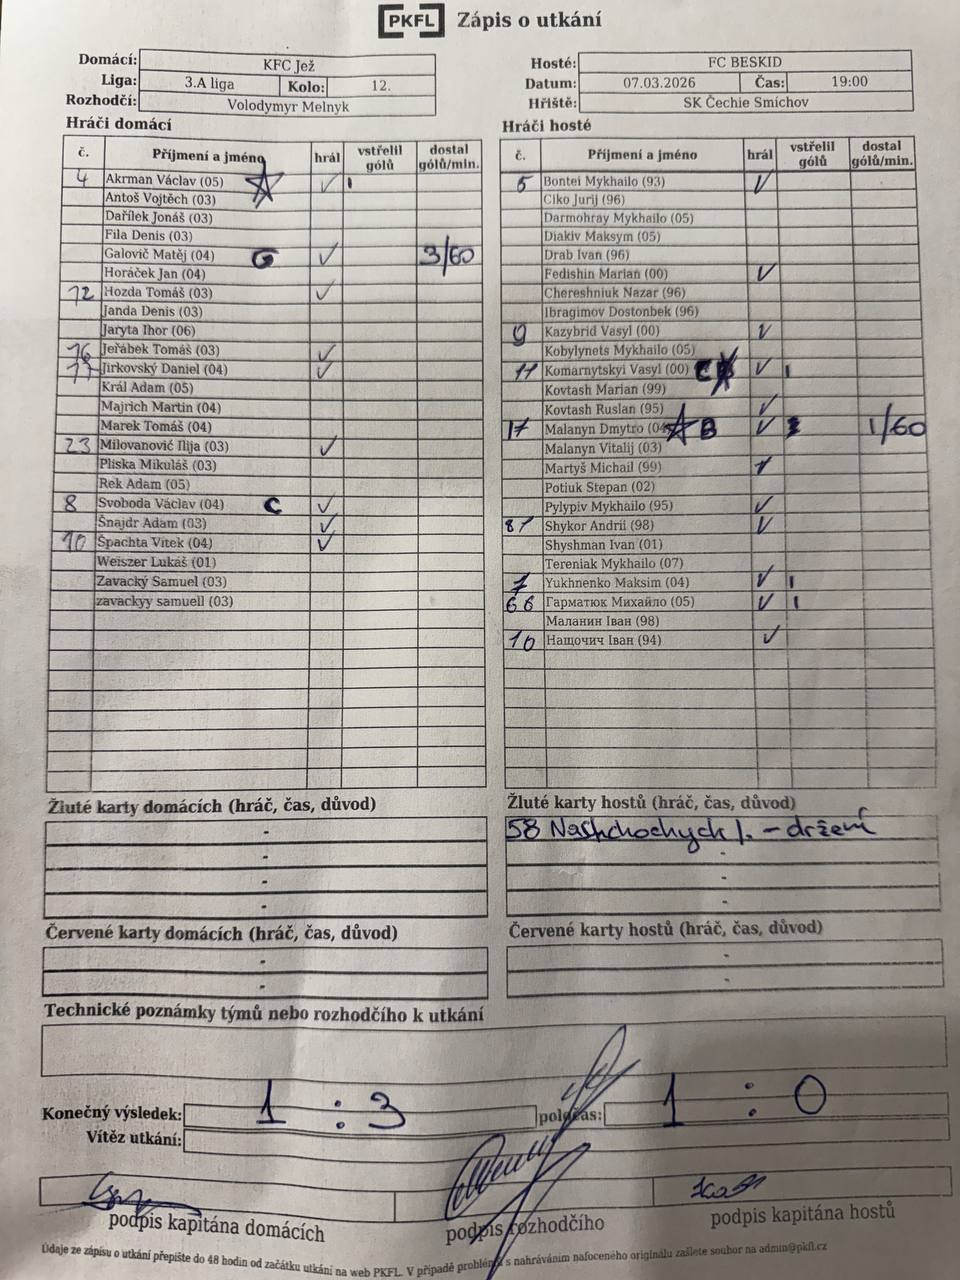 PKFL Zápis o utkání
Domácí: KFC Jež
Liga: 3.A liga Kolo: 12.
Rozhodčí: Volodymyr Melnyk
Hosté: FC BESKID
Datum: 07.03.2026 Čas: 19:00
Hřiště: SK Čechie Smíchov
Hráči domácí
č. Příjmení a jméno hrál vstřelil gólů dostal gólů/min.
4 Akrman Václav (05) ✓ 1
Antoš Vojtěch (03)
Dařílek Jonáš (03)
Fila Denis (03)
Galovič Matěj (04) G ✓ 3/60
Horáček Jan (04)
12 Hozda Tomáš (03) ✓
Janda Denis (03)
Jaryta Ihor (06)
16 Jeřábek Tomáš (03) ✓
Jirkovský Daniel (04) ✓
Král Adam (05)
Majrich Martin (04)
Marek Tomáš (04)
23 Milovanović Ilija (03) ✓
Pliska Mikuláš (03)
Rek Adam (05)
8 Svoboda Václav (04) C ✓
Šnajdr Adam (03) ✓
10 Špachta Vítek (04) ✓
Weiszer Lukáš (01)
Zavacký Samuel (03)
zavackyy samuell (03)
Hráči hosté
č. Příjmení a jméno hrál vstřelil gólů dostal gólů/min.
5 Bontei Mykhailo (93) ✓
Ciko Jurij (96)
Darmohray Mykhailo (05)
Diakiv Maksym (05)
Drab Ivan (96)
Fedishin Marian (00) ✓
Chereshniuk Nazar (96)
Ibragimov Dostonbek (96)
9 Kazybrid Vasyl (00) ✓
Kobylynets Mykhailo (05)
11 Komarnytskyi Vasyl (00) C ✓ 1
Kovtash Marian (99)
Kovtash Ruslan (95) ✓
17 Malanyn Dmytro (04) B ✓ 1/60
Malanyn Vitalij (03)
Martyš Michail (99) ✓
Potiuk Stepan (02)
Pylypiv Mykhailo (95) ✓
87 Shykor Andrii (98) ✓
Shyshman Ivan (01)
Tereniak Mykhailo (07)
7 Yukhnenko Maksim (04) ✓ 1
66 Гарматюк Михайло (05) ✓ 1
Маланин Іван (98)
10 Нащочич Іван (94) ✓
Žluté karty domácích (hráč, čas, důvod)
-
-
-
-
Žluté karty hostů (hráč, čas, důvod)
58 Nashchochych I. - držení
-
-
-
Červené karty domácích (hráč, čas, důvod)
-
-
Červené karty hostů (hráč, čas, důvod)
-
-
Technické poznámky týmů nebo rozhodčího k utkání
Konečný výsledek: 1 : 3 poločas: 1 : 0
Vítěz utkání:
podpis kapitána domácích podpis rozhodčího podpis kapitána hostů
Údaje ze zápisu o utkání přepište do 48 hodin od začátku utkání na web PKFL. V případě problémů s nahráváním nafoceného originálu zašlete soubor na admin@pkfl.cz